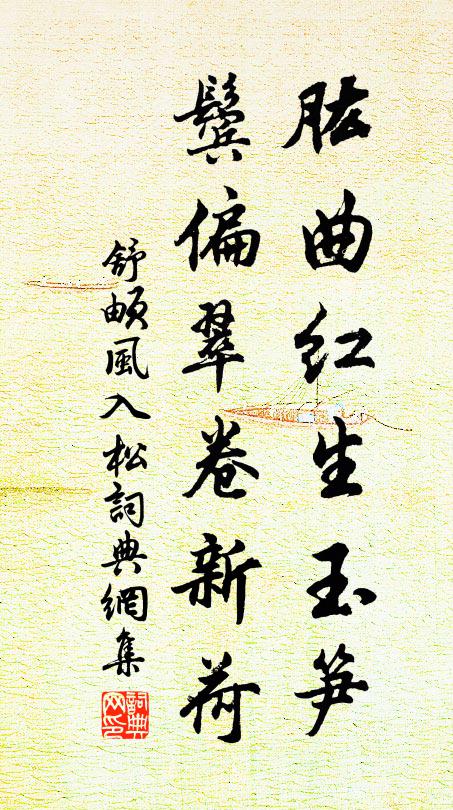 肱曲红生玉笋
鬓偏翠卷新荷
舒頔風入松詞典網集
詞典网印